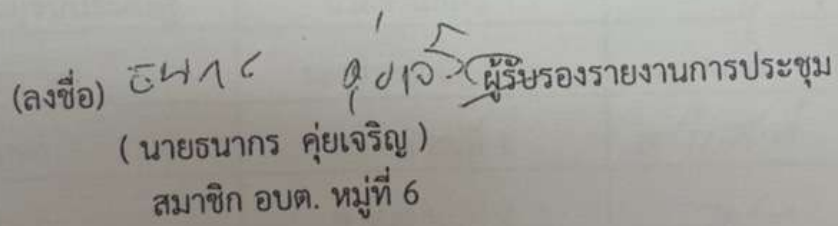 (ลงชื่อ) ธนากร คุ่ยเจริญ ผู้รับรองรายงานการประชุม
( นายธนากร คุ่ยเจริญ )
สมาชิก อบต. หมู่ที่ 6